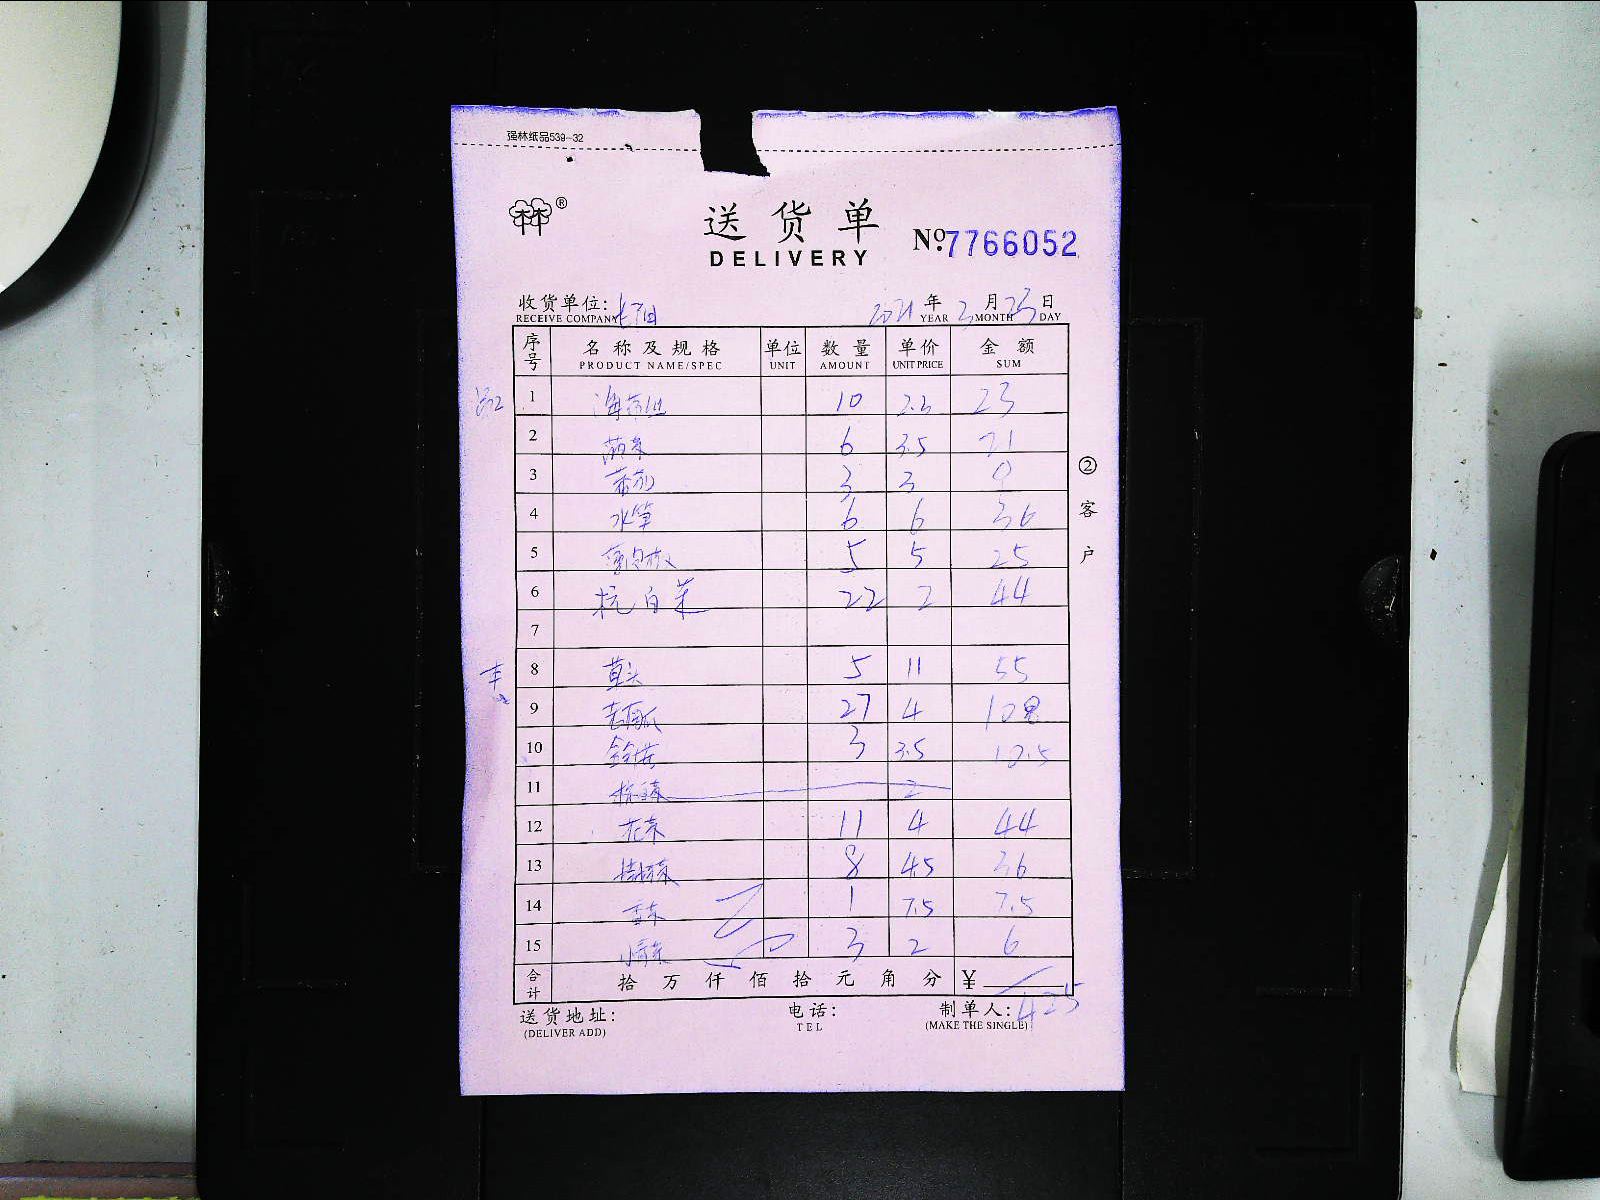 强林纸品539-32
林林®
送货单
DELIVERY
No.7766052
收货单位:
RECEIVE COMPANY
2021年3月25日
YEAR MONTH DAY
序号 名称及规格 单位 数量 单价 金额
PRODUCT NAME/SPEC UNIT AMOUNT UNIT PRICE SUM
1 10 2.3 23
2 6 3.5 21
3 番茄 3 3 9
4 水笋 6 6 36
5 5 5 25
6 杭白菜 22 2 44
7
8 草头 5 11 55
9 27 4 108
10 3 3.5 10.5
11 2
12 花菜 11 4 44
13 8 4.5 36
14 香菜 1 7.5 7.5
15 小青菜 3 2 6
合计 拾万仟佰拾元角分 ¥
425
②客户
送货地址:
(DELIVER ADD)
电话:
TEL
制单人:
(MAKE THE SINGLE)